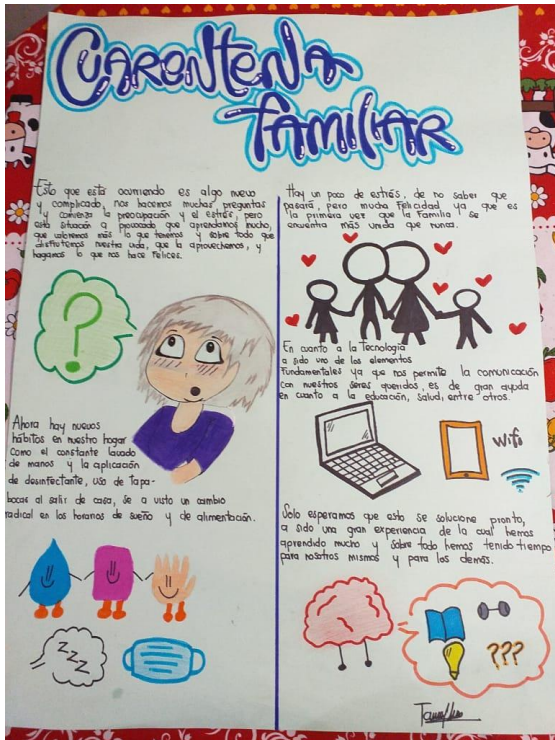 CUARENTENA
FAMILIAR
Esto que está ocurriendo es algo nuevo
y complicado, nos hacemos muchas preguntas
y comienza la preocupación y el estrés, pero
esta situación a provocado que aprendamos mucho,
que valoremos más lo que tenemos y sobre todo que
disfrutemos nuestra vida, que la aprovechemos, y
hagamos lo que nos hace felices.
Ahora hay nuevos
hábitos en nuestro hogar
como el constante lavado
de manos y la aplicación
de desinfectante, uso de tapa-
bocas al salir de casa, se a visto un cambio
radical en los horarios de sueño y de alimentación.
Z Z Z
Hay un poco de estrés, de no saber que
pasará, pero mucha Felicidad ya que es
la primera vez que la Familia se
encuentra más unida que nunca.
En cuanto a la Tecnología
a sido uno de los elementos
Fundamentales ya que nos permite la comunicación
con nuestros seres queridos, es de gran ayuda
en cuanto a la educación, salud, entre otros.
Wifi
Solo esperamos que esto se solucione pronto,
a sido una gran experiencia de la cual hemos
aprendido mucho y sobre todo hemos tenido tiempo
para nosotros mismos y para los demás.
???